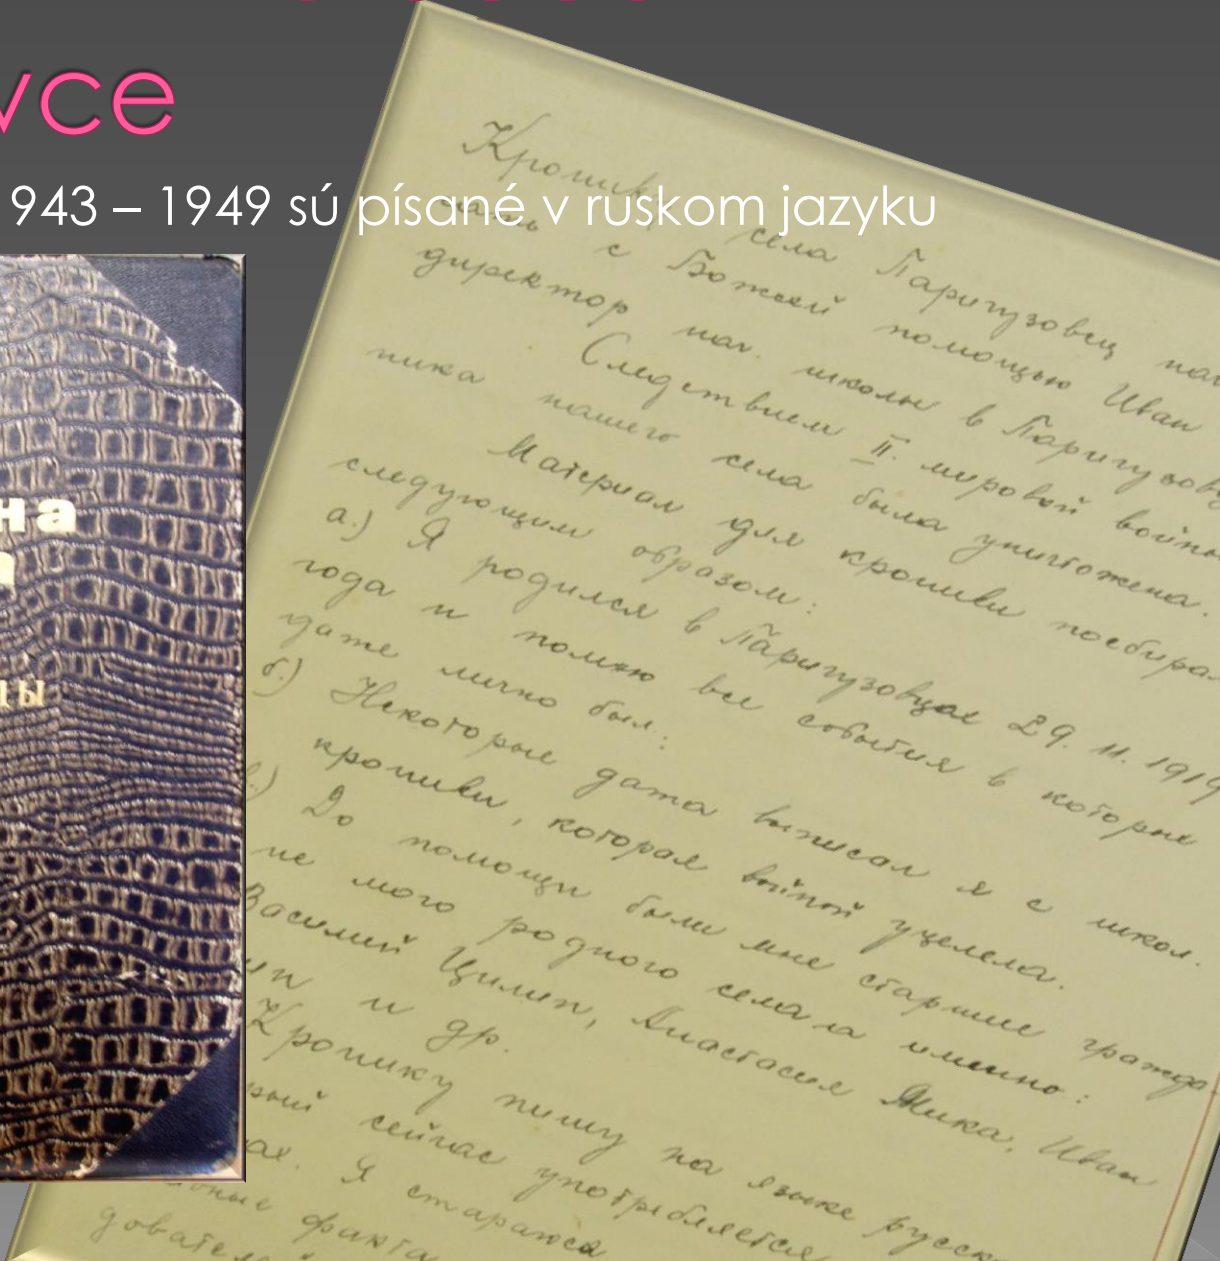 vce
943 – 1949 sú písané v ruskom jazyku
на
а
цы
села Паригузовец
с Божией помощью Иван
директор нач. школы в Паригузовц
Следствием II. мировой войны
ника нашего села была уничтожена.
Материал для кроники посбирал
следующим образом:
а.) Я родился в Паригузовцах 29. 11. 1919
года и помню все события в которых
даже лично был:
б.) Некоторые дата выписал я с школ.
кроники, которая войной уцелела.
.) До помощи были мне старшие гражда-
не мого родного села а именно:
Василий Цилип, Анастасия Мика, Иван
ип и др.
Кронику пишу на языке русск
рый сейчас употребляется
ах. Я стараюся
факта
довател